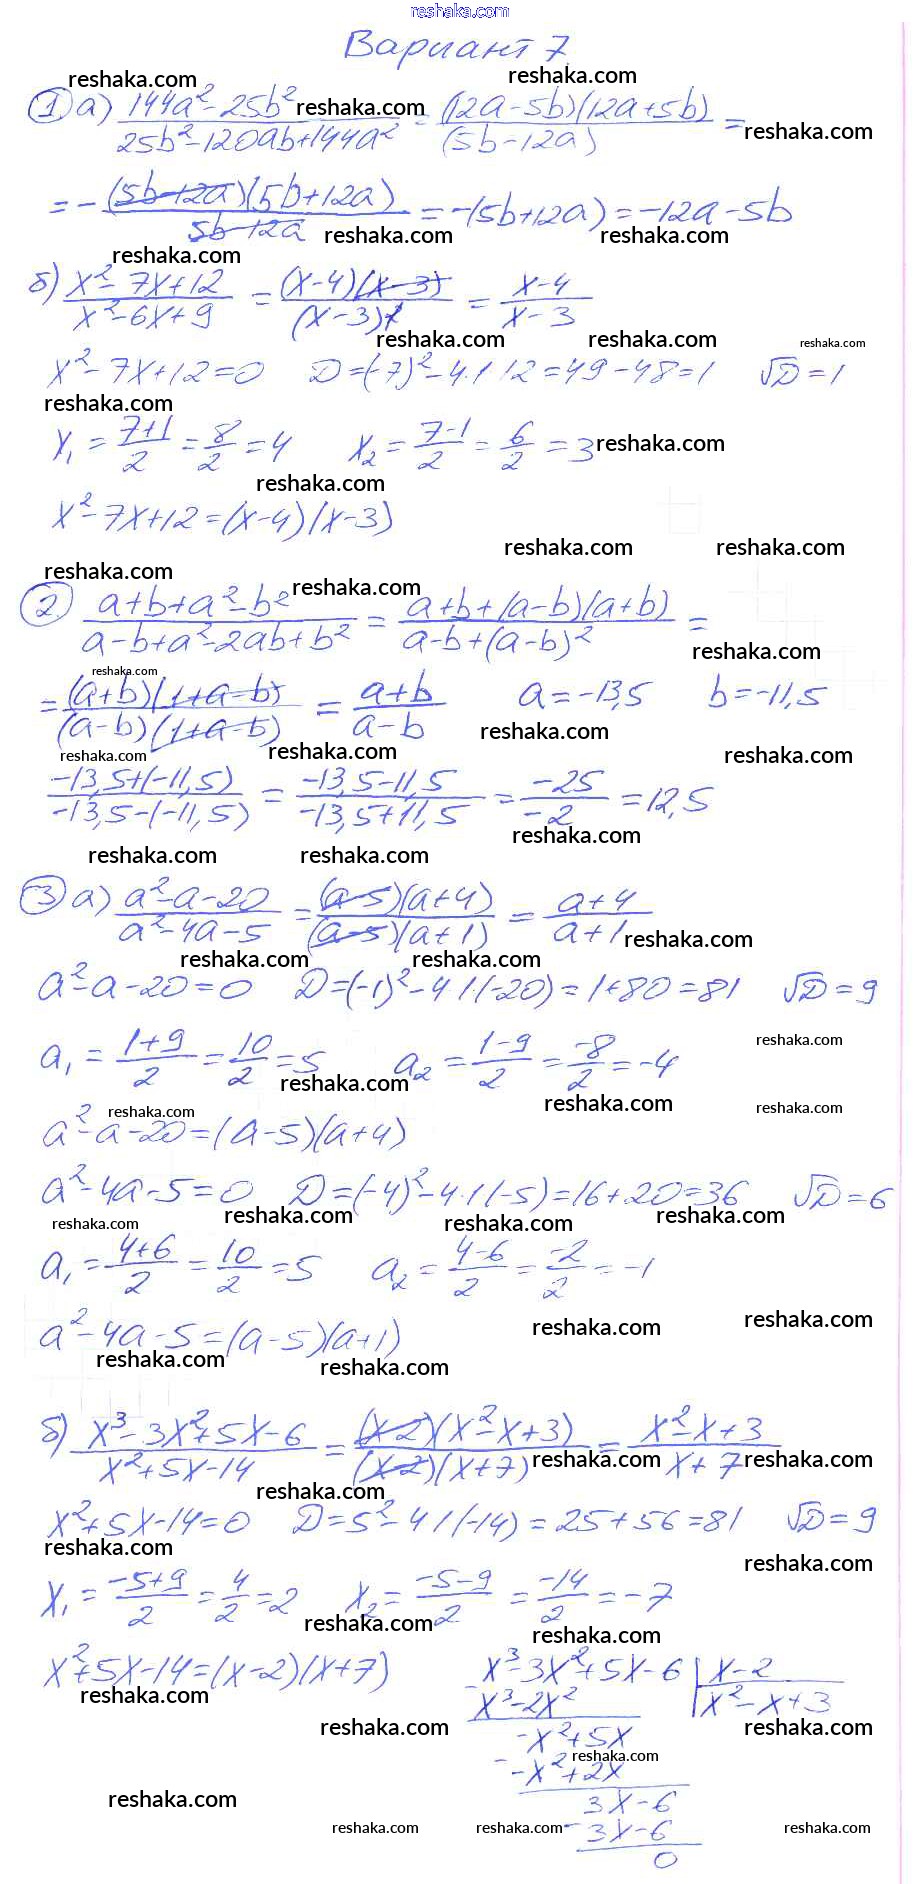 reshaka.com
Вариант 7
reshaka.com reshaka.com
① а) (144a² - 25b²)/(25b² - 120ab + 144a²) = ((12a - 5b)(12a + 5b))/(5b - 12a) =
reshaka.com reshaka.com
= - ((5b - 12a)(5b + 12a))/(5b - 12a) = -(5b + 12a) = -12a - 5b
reshaka.com reshaka.com
reshaka.com
б) (x² - 7x + 12)/(x² - 6x + 9) = ((x - 4)(x - 3))/(x - 3)² = (x - 4)/(x - 3)
reshaka.com reshaka.com reshaka.com
x² - 7x + 12 = 0 D = (-7)² - 4·1·12 = 49 - 48 = 1 √D = 1
reshaka.com
x₁ = (7+1)/2 = 8/2 = 4 x₂ = (7-1)/2 = 6/2 = 3 reshaka.com
reshaka.com
x² - 7x + 12 = (x - 4)(x - 3)
reshaka.com reshaka.com
reshaka.com reshaka.com
② (a + b + a² - b²)/(a - b + a² - 2ab + b²) = (a + b + (a - b)(a + b))/(a - b + (a - b)²) =
reshaka.com
reshaka.com
= ((a + b)(1 + a - b))/((a - b)(1 + a - b)) = (a + b)/(a - b) a = -13,5 b = -11,5
reshaka.com reshaka.com reshaka.com reshaka.com
(-13,5 + (-11,5))/(-13,5 - (-11,5)) = (-13,5 - 11,5)/(-13,5 + 11,5) = -25/-2 = 12,5
reshaka.com
reshaka.com reshaka.com
③ а) (a² - a - 20)/(a² - 4a - 5) = ((a - 5)(a + 4))/((a - 5)(a + 1)) = (a + 4)/(a + 1) reshaka.com
reshaka.com reshaka.com
a² - a - 20 = 0 D = (-1)² - 4·1·(-20) = 1 + 80 = 81 √D = 9
reshaka.com
a₁ = (1+9)/2 = 10/2 = 5 a₂ = (1-9)/2 = -8/2 = -4
reshaka.com reshaka.com reshaka.com
reshaka.com
a² - a - 20 = (a - 5)(a + 4)
a² - 4a - 5 = 0 D = (-4)² - 4·1·(-5) = 16 + 20 = 36 √D = 6
reshaka.com reshaka.com reshaka.com reshaka.com
a₁ = (4+6)/2 = 10/2 = 5 a₂ = (4-6)/2 = -2/2 = -1
reshaka.com reshaka.com
a² - 4a - 5 = (a - 5)(a + 1)
reshaka.com reshaka.com
б) (x³ - 3x² + 5x - 6)/(x² + 5x - 14) = ((x - 2)(x² - x + 3))/((x - 2)(x + 7)) = (x² - x + 3)/(x + 7)
reshaka.com reshaka.com
reshaka.com
x² + 5x - 14 = 0 D = 5² - 4·1·(-14) = 25 + 56 = 81 √D = 9
reshaka.com reshaka.com
x₁ = (-5+9)/2 = 4/2 = 2 x₂ = (-5-9)/2 = -14/2 = -7
reshaka.com reshaka.com
x² + 5x - 14 = (x - 2)(x + 7)
reshaka.com
x³ - 3x² + 5x - 6 | x - 2
x³ - 2x² | x² - x + 3
reshaka.com reshaka.com
-x² + 5x
reshaka.com
-x² + 2x
3x - 6
reshaka.com
3x - 6
reshaka.com reshaka.com reshaka.com
0